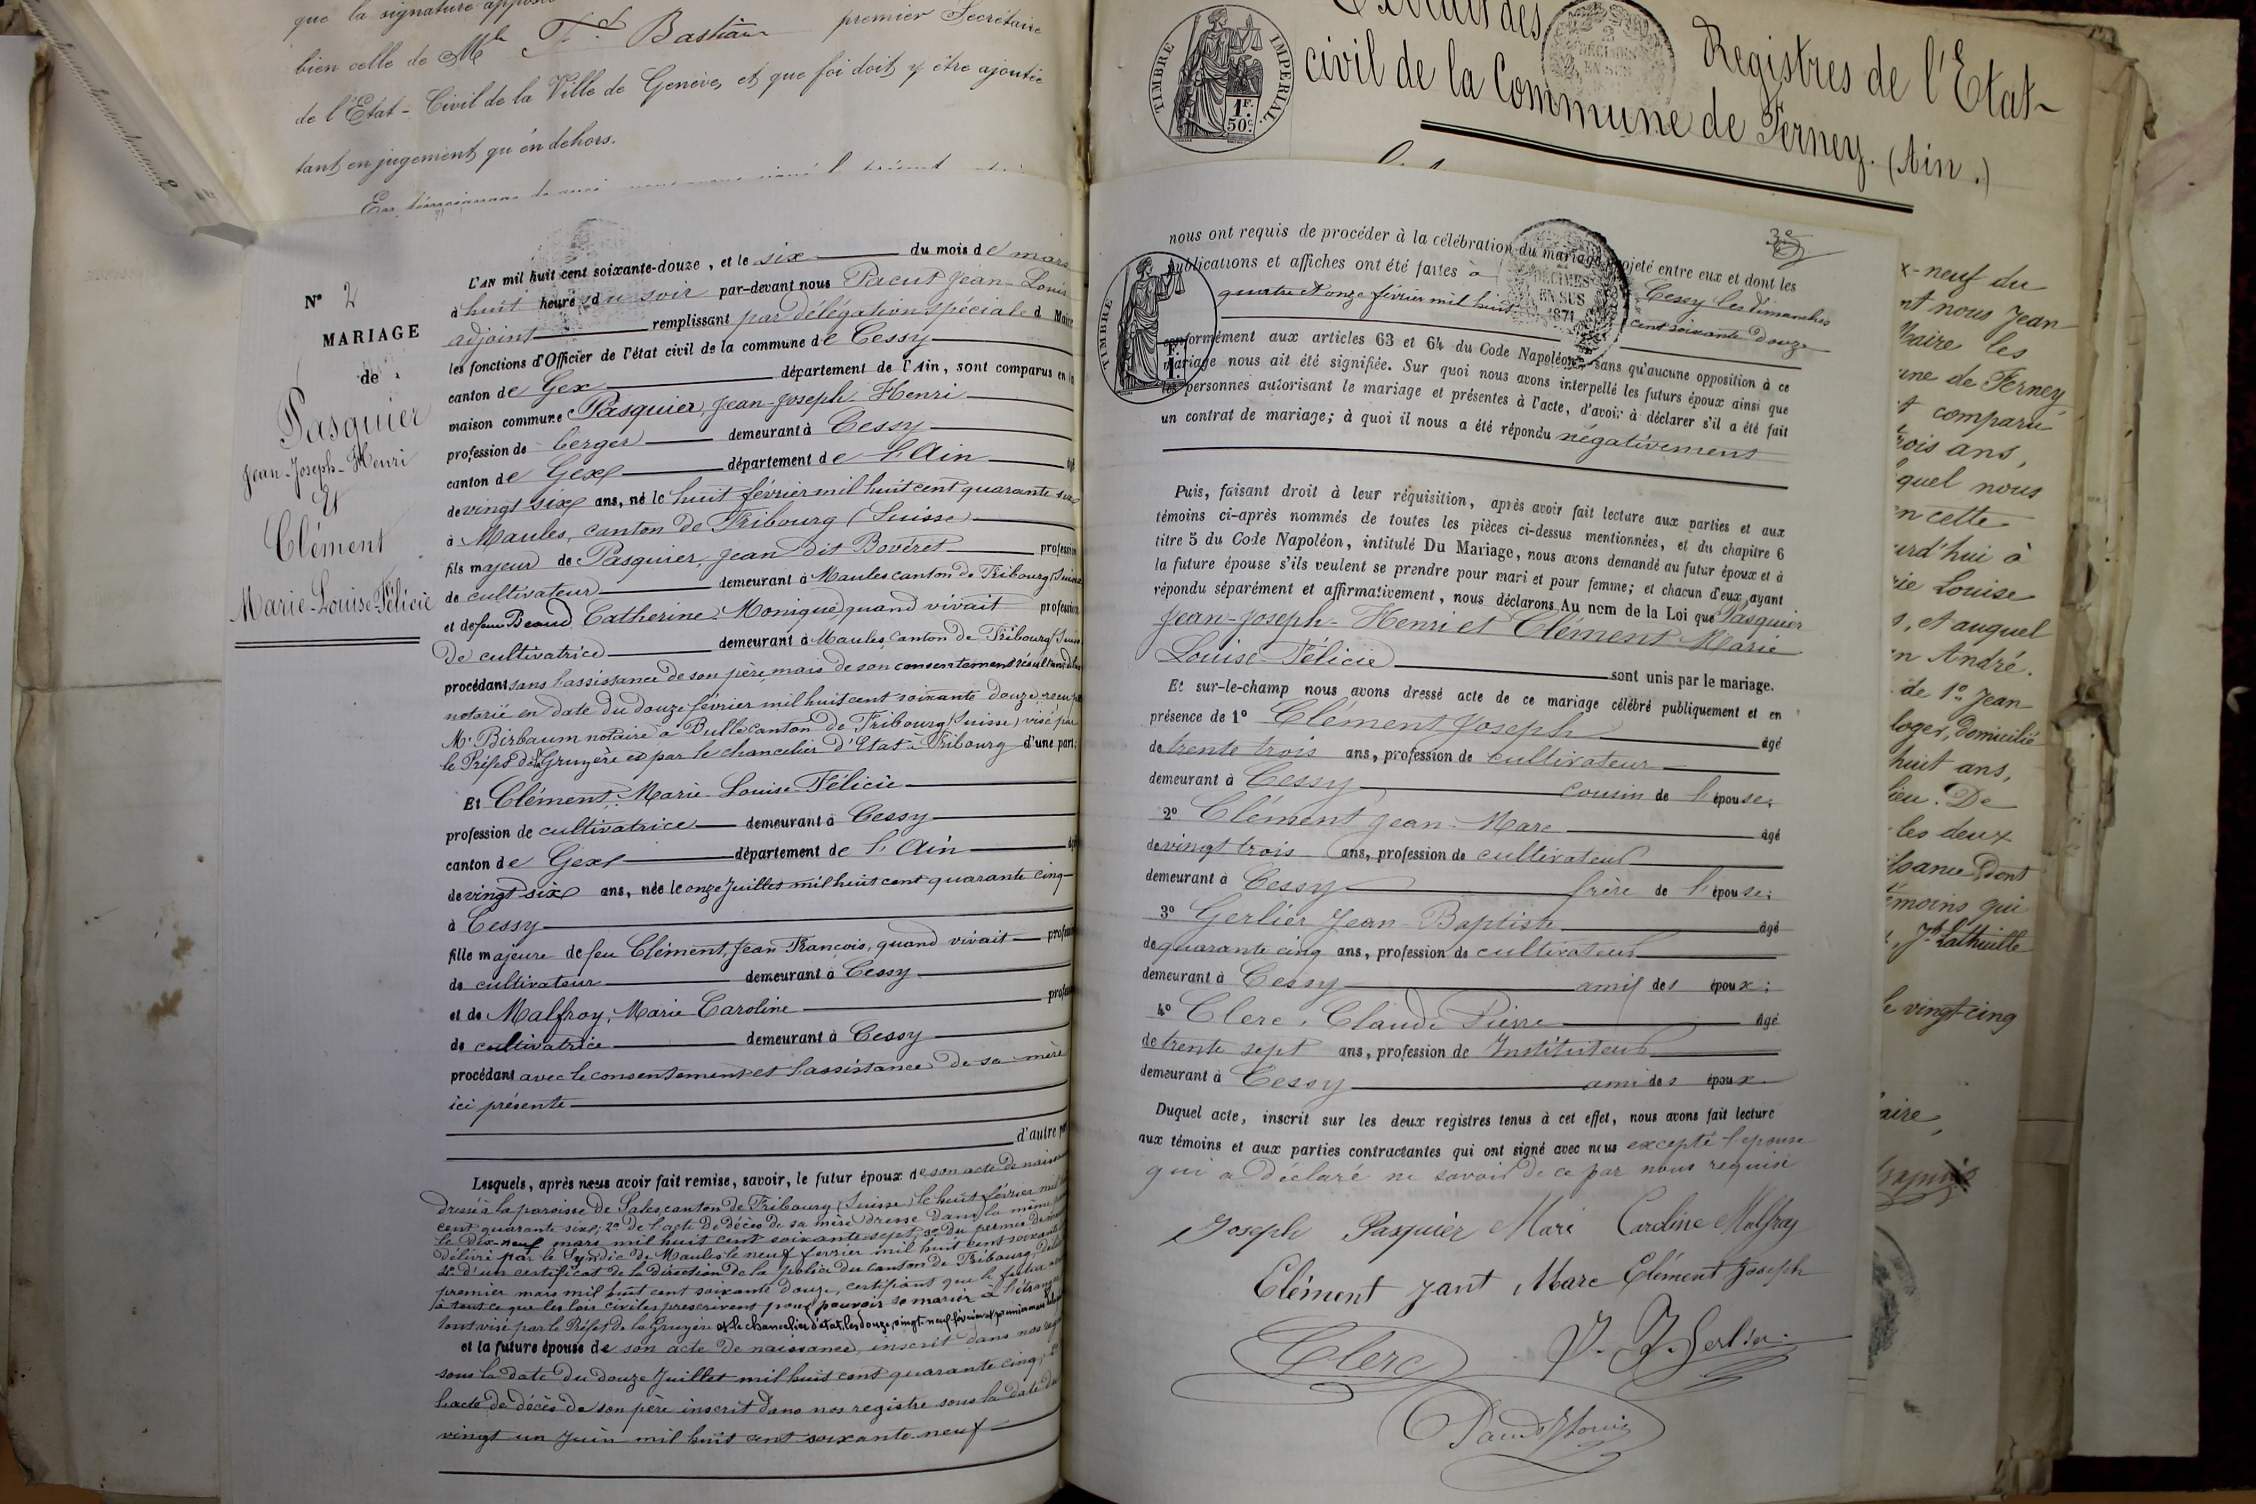 que la signature
bien celle de Mr Fd Bastian premier Secrétaire
de l'Etat-Civil de la Ville de Genève, et que foi doit y être ajoutée
tant en jugement qu'en dehors.
TIMBRE IMPERIAL
1F. 50c
Extrait des Registres de l'Etat-
2 DÉCIMES EN SUS
civil de la Commune de Ferney. (Ain.)
No 2
MARIAGE
de
Pasquier
Jean-Joseph-Henri
Et
Clément
Marie-Louise-Félicie
L'AN mil huit cent soixante-douze, et le six du mois de mars
à huit heures du soir par-devant nous Pacut Jean-Louis
adjoint remplissant par délégation spéciale d Maire
les fonctions d'Officier de l'état civil de la commune de Cessy
canton de Gex département de l'Ain, sont comparus en la
maison commune Pasquier, Jean-Joseph Henri
profession de berger demeurant à Cessy
canton de Gex département de l'Ain âgé
de vingt six ans, né le huit février mil huit cent quarante six
à Maules, canton de Fribourg (Suisse)
fils majeur de Pasquier, Jean dit Bovéret profession
de cultivateur demeurant à Maules canton de Fribourg (Suisse
et de feue Beaud Catherine Monique, quand vivait profession
de cultivatrice demeurant à Maules, canton de Fribourg (Suisse
procédant sans l'assistance de son père, mais de son consentement résultant
notarié en date du douze février mil huit cent soixante douze, reçu par
Mr Birbaum notaire à Bulle canton de Fribourg (Suisse) visé par
le Préfet de la Gruyère et par le chancelier d'Etat à Fribourg d'une part;
Et Clément, Marie Louise Félicie
profession de cultivatrice demeurant à Cessy
canton de Gex département de l'Ain âgée
de vingt six ans, née le onze Juillet mil huit cent quarante cinq
à Cessy
fille majeure de feu Clément, Jean François, quand vivait profession
de cultivateur demeurant à Cessy
et de Malfroy, Marie Caroline profession
de cultivatrice demeurant à Cessy
procédant avec le consentement et l'assistance de sa mère
ici présente
d'autre part
Lesquels, après nous avoir fait remise, savoir, le futur époux de son acte de naissance
dressé à la paroisse de Sales, canton de Fribourg (Suisse) le huit février mil huit
cent quarante six; 2o de l'acte de décès de sa mère dressé dans la même paroisse
le dix-neuf mars mil huit cent soixante sept; 3o du permis de
délivré par le Syndic de Maules le neuf février mil huit cent soixante
4o d'un certificat de la direction de la police du canton de Fribourg,
premier mars mil huit cent soixante douze, certifiant que le futur
à tout ce que les lois civiles prescrivent pour pouvoir se marier à l'étranger
tout visé par le Préfet de la Gruyère et le chancelier d'état, les douze, vingt-neuf février et premier mars
et la future épouse de son acte de naissance, inscrit dans nos registres
sous la date du douze Juillet mil huit cent quarante cinq; 2o
l'acte de décès de son père inscrit dans nos registre sous la date du
vingt un Juin mil huit cent soixante neuf
3e
nous ont requis de procéder à la célébration du mariage projeté entre eux et dont les
publications et affiches ont été faites à Cessy les dimanches
quatre et onze février mil huit cent soixante douze
TIMBRE
DÉCIMES EN SUS 1871
conformément aux articles 63 et 64 du Code Napoléon, sans qu'aucune opposition à ce
mariage nous ait été signifiée. Sur quoi nous avons interpellé les futurs époux ainsi que
les personnes autorisant le mariage et présentes à l'acte, d'avoir à déclarer s'il a été fait
un contrat de mariage; à quoi il nous a été répondu négativement
Puis, faisant droit à leur réquisition, après avoir fait lecture aux parties et aux
témoins ci-après nommés de toutes les pièces ci-dessus mentionnées, et du chapitre 6
titre 5 du Code Napoléon, intitulé Du Mariage, nous avons demandé au futur époux et à
la future épouse s'ils veulent se prendre pour mari et pour femme; et chacun d'eux ayant
répondu séparément et affirmativement, nous déclarons Au nom de la Loi que Pasquier
Jean-Joseph-Henri et Clément Marie
Louise-Félicie sont unis par le mariage.
Et sur-le-champ nous avons dressé acte de ce mariage célébré publiquement et en
présence de 1o Clément Joseph âgé
de trente trois ans, profession de cultivateur
demeurant à Cessy cousin de l'épouse;
2o Clément Jean-Marc âgé
de vingt trois ans, profession de cultivateur
demeurant à Cessy frère de l'épouse;
3o Gerlier Jean-Baptiste âgé
de quarante cinq ans, profession de cultivateur
demeurant à Cessy ami des époux;
4o Clerc, Claude Pierre âgé
de trente sept ans, profession de Instituteur
demeurant à Cessy ami des époux
Duquel acte, inscrit sur les deux registres tenus à cet effet, nous avons fait lecture
aux témoins et aux parties contractantes qui ont signé avec nous excepté l'épouse
qui a déclaré ne savoir de ce par nous requise
Joseph Pasquier Mari Caroline Malfroy
Clément Jant Marc Clément Joseph
Clerc J. B. Gerlier
x-neuf du
nt nous Jean
Maire les
une de Ferney
t comparu
trois ans,
quel nous
n cette
urd'hui à
rie Louise
s, et auquel
n André.
de 1o Jean
loger, domicilié
huit ans,
lieu. De
les deux
témoins qui
Jh Lathuille
le vingt-cinq
aire,